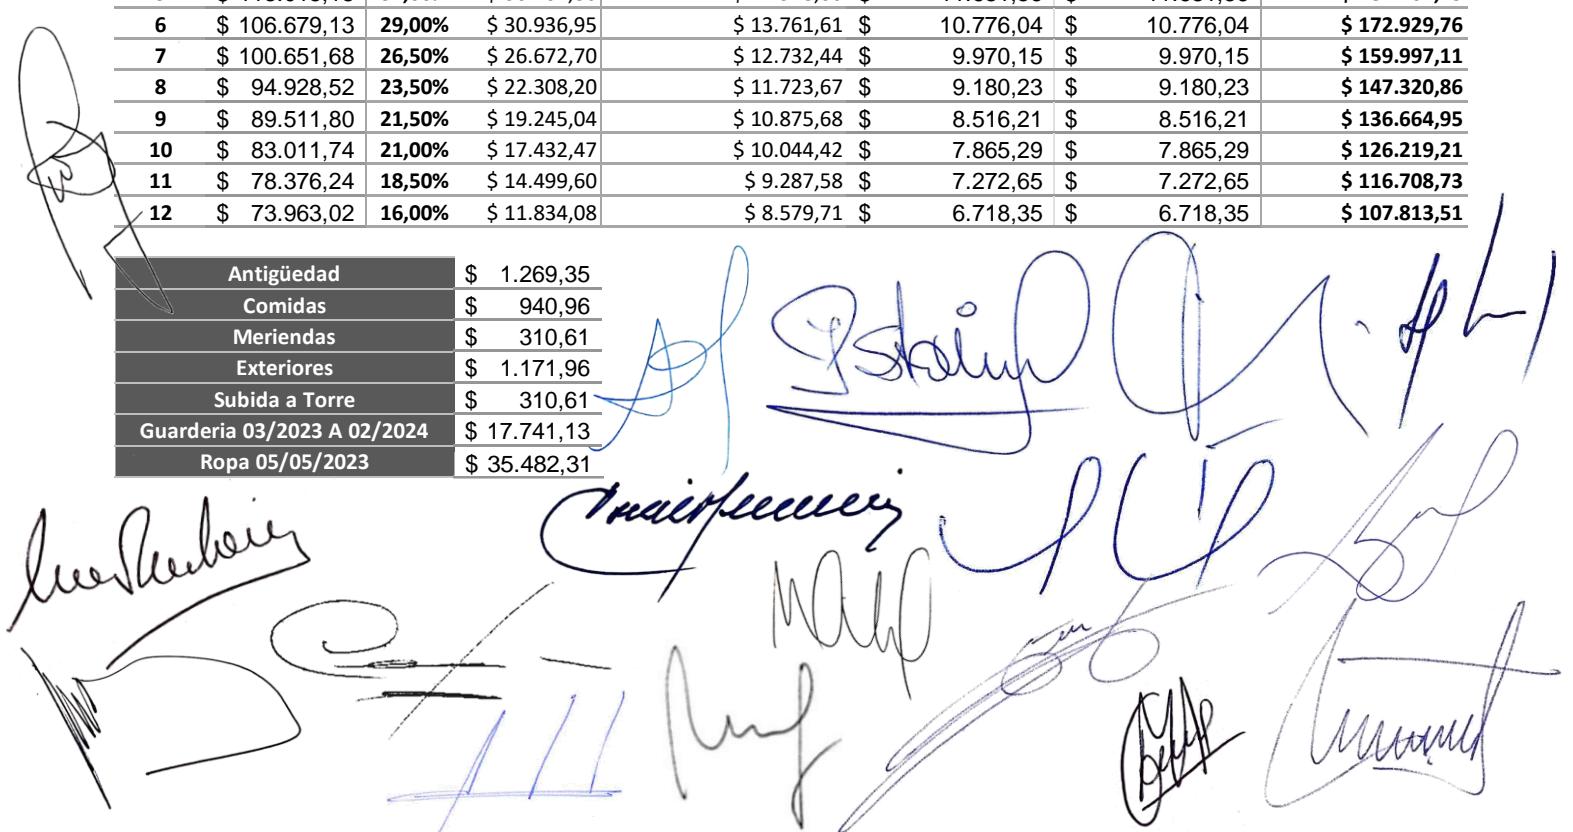 6 $ 106.679,13 29,00% $ 30.936,95 $ 13.761,61 $ 10.776,04 $ 10.776,04 $ 172.929,76
7 $ 100.651,68 26,50% $ 26.672,70 $ 12.732,44 $ 9.970,15 $ 9.970,15 $ 159.997,11
8 $ 94.928,52 23,50% $ 22.308,20 $ 11.723,67 $ 9.180,23 $ 9.180,23 $ 147.320,86
9 $ 89.511,80 21,50% $ 19.245,04 $ 10.875,68 $ 8.516,21 $ 8.516,21 $ 136.664,95
10 $ 83.011,74 21,00% $ 17.432,47 $ 10.044,42 $ 7.865,29 $ 7.865,29 $ 126.219,21
11 $ 78.376,24 18,50% $ 14.499,60 $ 9.287,58 $ 7.272,65 $ 7.272,65 $ 116.708,73
12 $ 73.963,02 16,00% $ 11.834,08 $ 8.579,71 $ 6.718,35 $ 6.718,35 $ 107.813,51
Antigüedad $ 1.269,35
Comidas $ 940,96
Meriendas $ 310,61
Exteriores $ 1.171,96
Subida a Torre $ 310,61
Guarderia 03/2023 A 02/2024 $ 17.741,13
Ropa 05/05/2023 $ 35.482,31